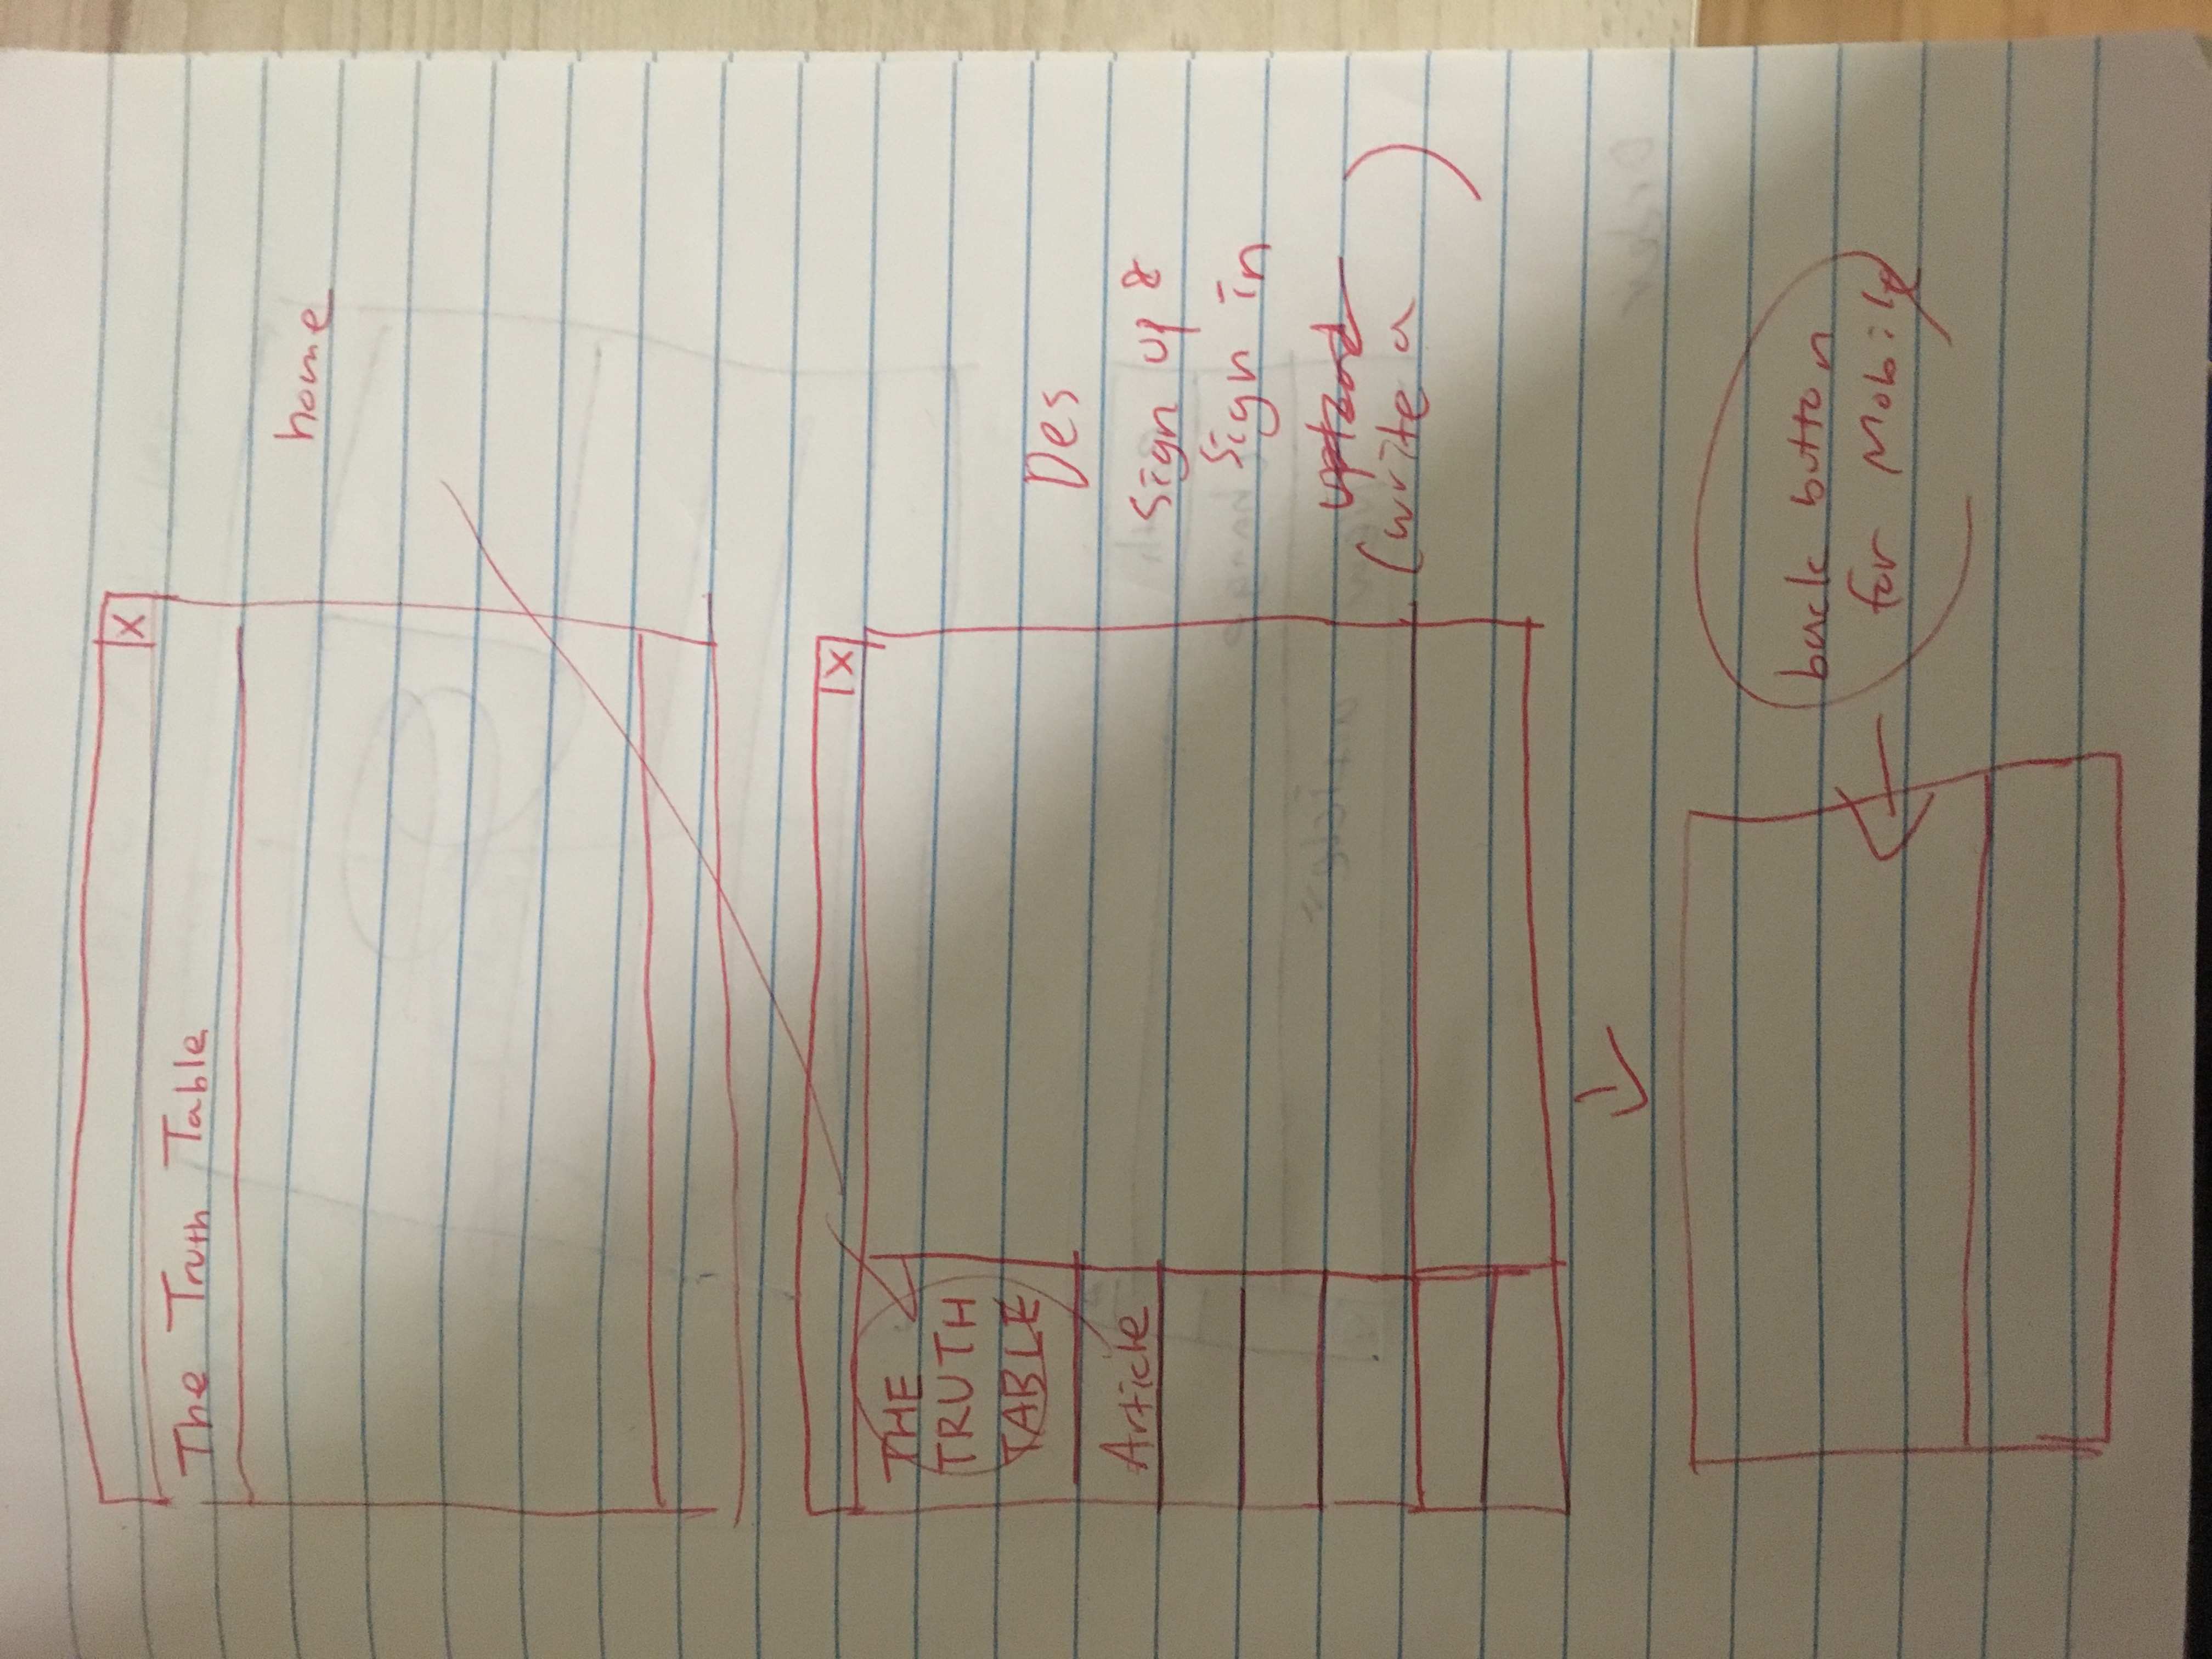 X
The Truth Table
home
X
THE
TRUTH
TABLE
Article
Des
Sign up &
Sign in
(write a )
back button
for Mobile